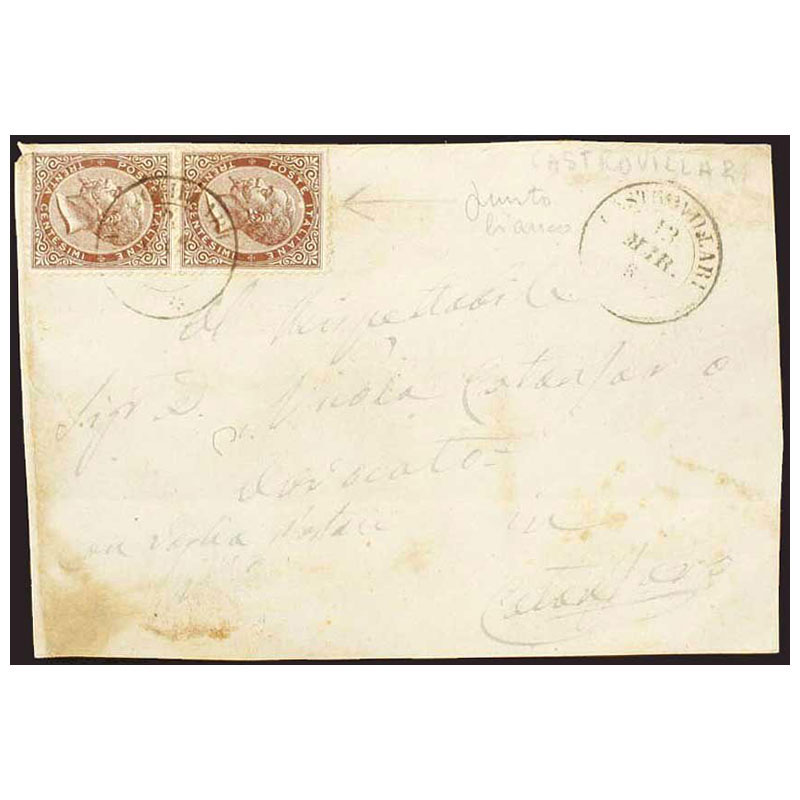 CASTROVILLARI
punto
bianco
CASTROVILLARI
13
MAR.
POSTE ITALIANE
CENTESIMI TRENTA
POSTE ITALIANE
CENTESIMI TRENTA
Al Rispettabile
Sigr D. Nicola Catanzaro
Avvocato
con Vaglia Postale in
Catanzaro